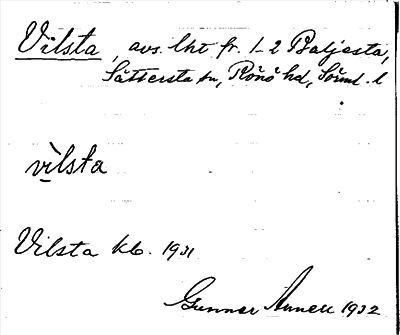 Vilsta, avs. lht fr. 1-2 Baljesta,
Sättersta sn, Rönö hd, Sörml. l
vi̠̊̀lsta
Vilsta kb. 1931
Gunnar Annell 1932